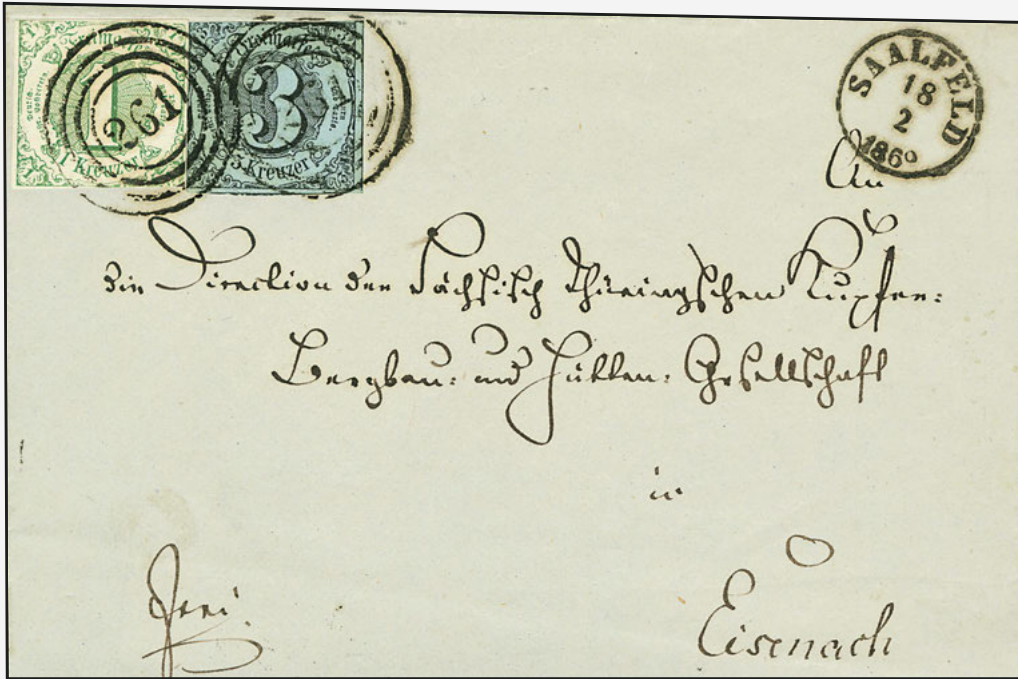 1 Kreuzer
261
Freimarke
3
3 Kreuzer
SAALFELD
18
2
1860
An
die Direction der Sächsisch Thüringschen Kupfer=
Bergbau= und Hütten= Gesellschaft
in
Eisenach
frei.